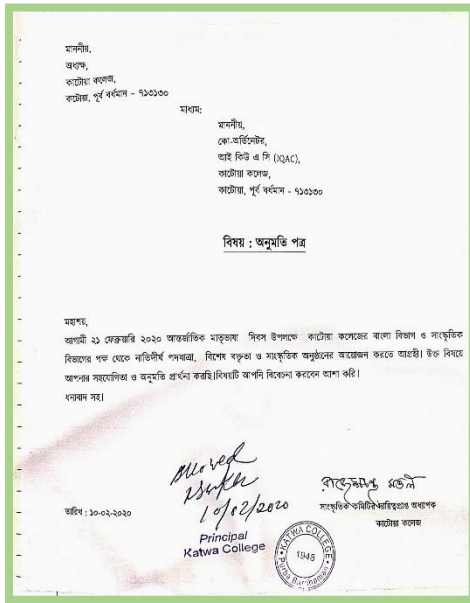 মাননীয়,
অধ্যক্ষ,
কাটোয়া কলেজ,
কাটোয়া, পূর্ব বর্ধমান - ৭১৩১৩০
মাধ্যম:
মাননীয়,
কো-অর্ডিনেটর,
আই কিউ এ সি (IQAC),
কাটোয়া কলেজ,
কাটোয়া, পূর্ব বর্ধমান - ৭১৩১৩০
বিষয় : অনুমতি পত্র
মহাশয়,
আগামী ২১ ফেব্রুয়ারি ২০২০ আন্তর্জাতিক মাতৃভাষা দিবস উপলক্ষে কাটোয়া কলেজের বাংলা বিভাগ ও সাংস্কৃতিক
বিভাগের পক্ষ থেকে নাতিদীর্ঘ পদযাত্রা, বিশেষ বক্তৃতা ও সাংস্কৃতিক অনুষ্ঠানের আয়োজন করতে আগ্রহী। উক্ত বিষয়ে
আপনার সহযোগিতা ও অনুমতি প্রার্থনা করছি।বিষয়টি আপনি বিবেচনা করবেন আশা করি।
ধন্যবাদ সহ।
Allowed
10/02/2020
তারিখ : ১০-০২-২০২০
Principal
Katwa College
KATWA COLLEGE
1948
Purba Bardhaman
মণ্ডল
সাংস্কৃতিক কমিটির দায়িত্বপ্রাপ্ত অধ্যাপক
কাটোয়া কলেজ